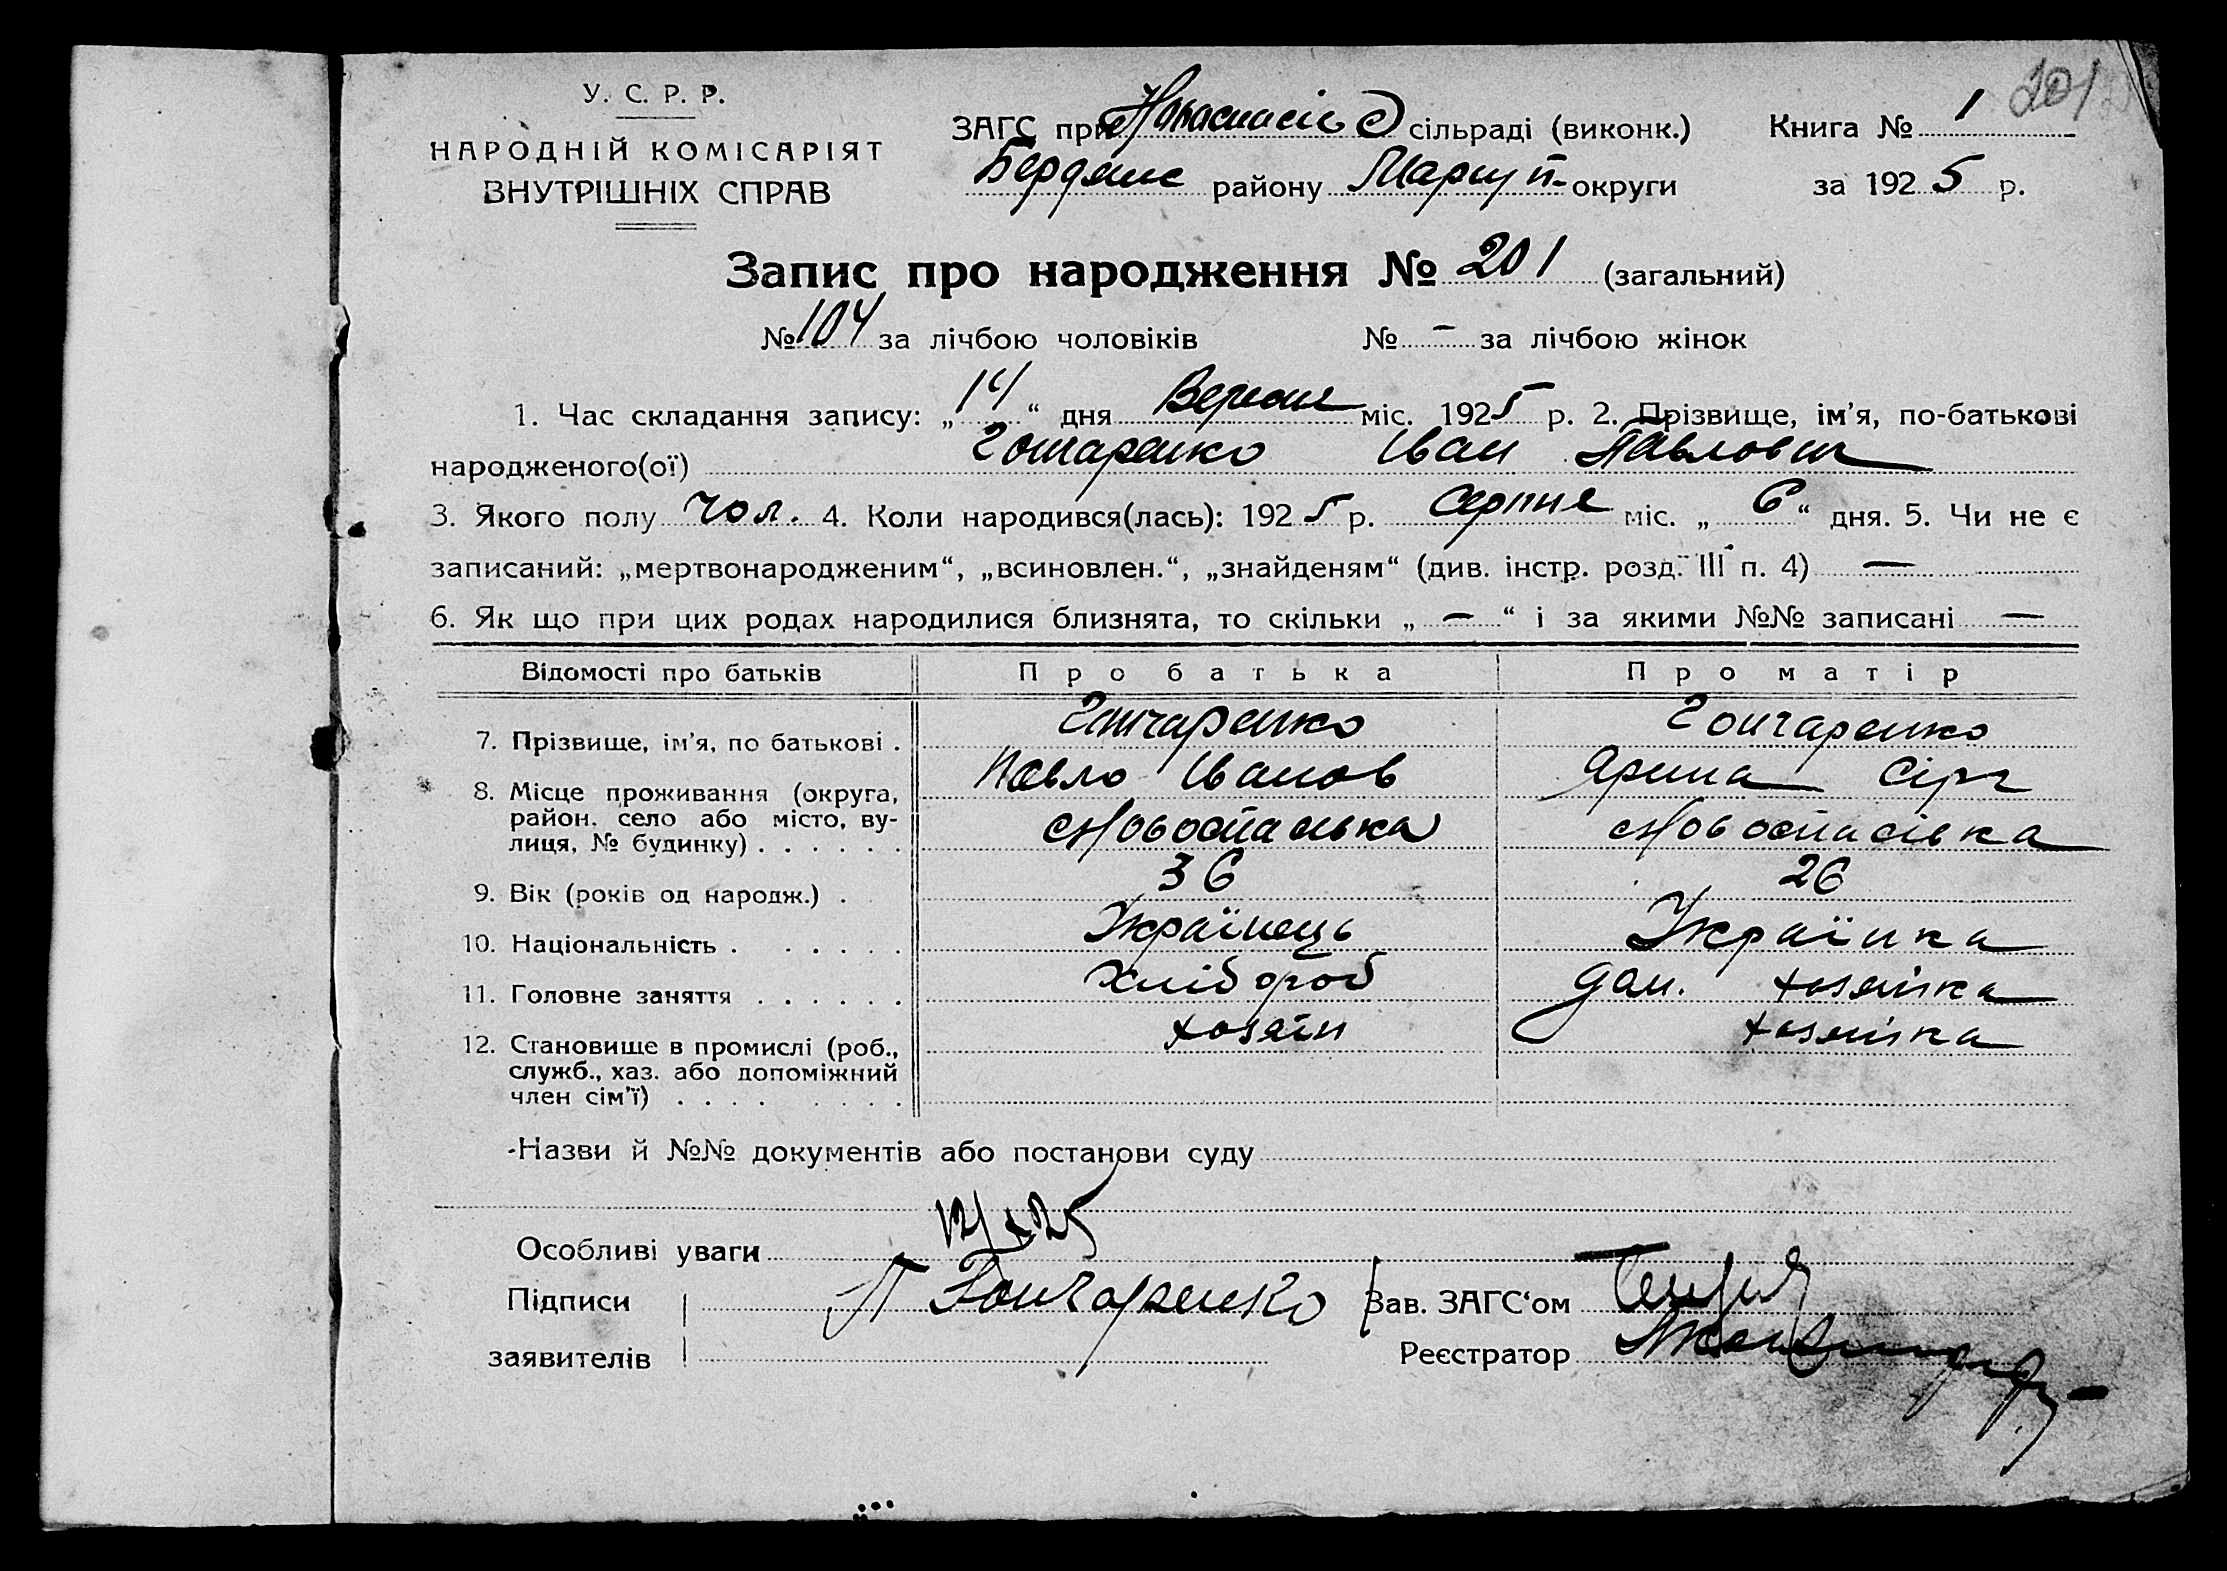 201
У. С. Р. Р.
НАРОДНІЙ КОМІСАРІЯТ
ВНУТРІШНІХ СПРАВ
ЗАГС при Новоспасівс сільраді (виконк.) Книга № 1
Бердянс району Маріуп. округи за 1925 р.
Запис про народження № 201 (загальний)
№ 104 за лічбою чоловіків № — за лічбою жінок
1. Час складання запису: „14“ дня Вересня міс. 1925 р. 2. Прізвище, ім’я, по-батькові
народженого(ої) Гончаренко Іван Павлович
3. Якого полу чол. 4. Коли народився(лась): 1925 р. Серпня міс. „6“ дня. 5. Чи не є
записаний: „мертвонародженим“, „всиновлен.“, „знайденям“ (див. інстр. розд. III п. 4) —
6. Як що при цих родах народилися близнята, то скільки „—“ і за якими №№ записані —
Відомості про батьків Про батька Про матір
7. Прізвище, ім’я, по батькові . Гончаренко Гончаренко
Павло Іванов Ярина Сірг
8. Місце проживання (округа, район. село або місто, ву-
лиця, № будинку) . . . . . . Новоспасівка Новоспасівка
9. Вік (років од народж.) . 36 26
10. Національність . . . . . . Українець Українка
11. Головне заняття . . . . . . Хлібороб дом. хозяйка
12. Становище в промислі (роб., хозяїн хозяйка
служб., хаз. або допоміжний
член сім’ї) . . . . . . . .
Назви й №№ документів або постанови суду
Особливі уваги
Підписи П Гончаренко Зав. ЗАГС‘ом
заявителів Реєстратор